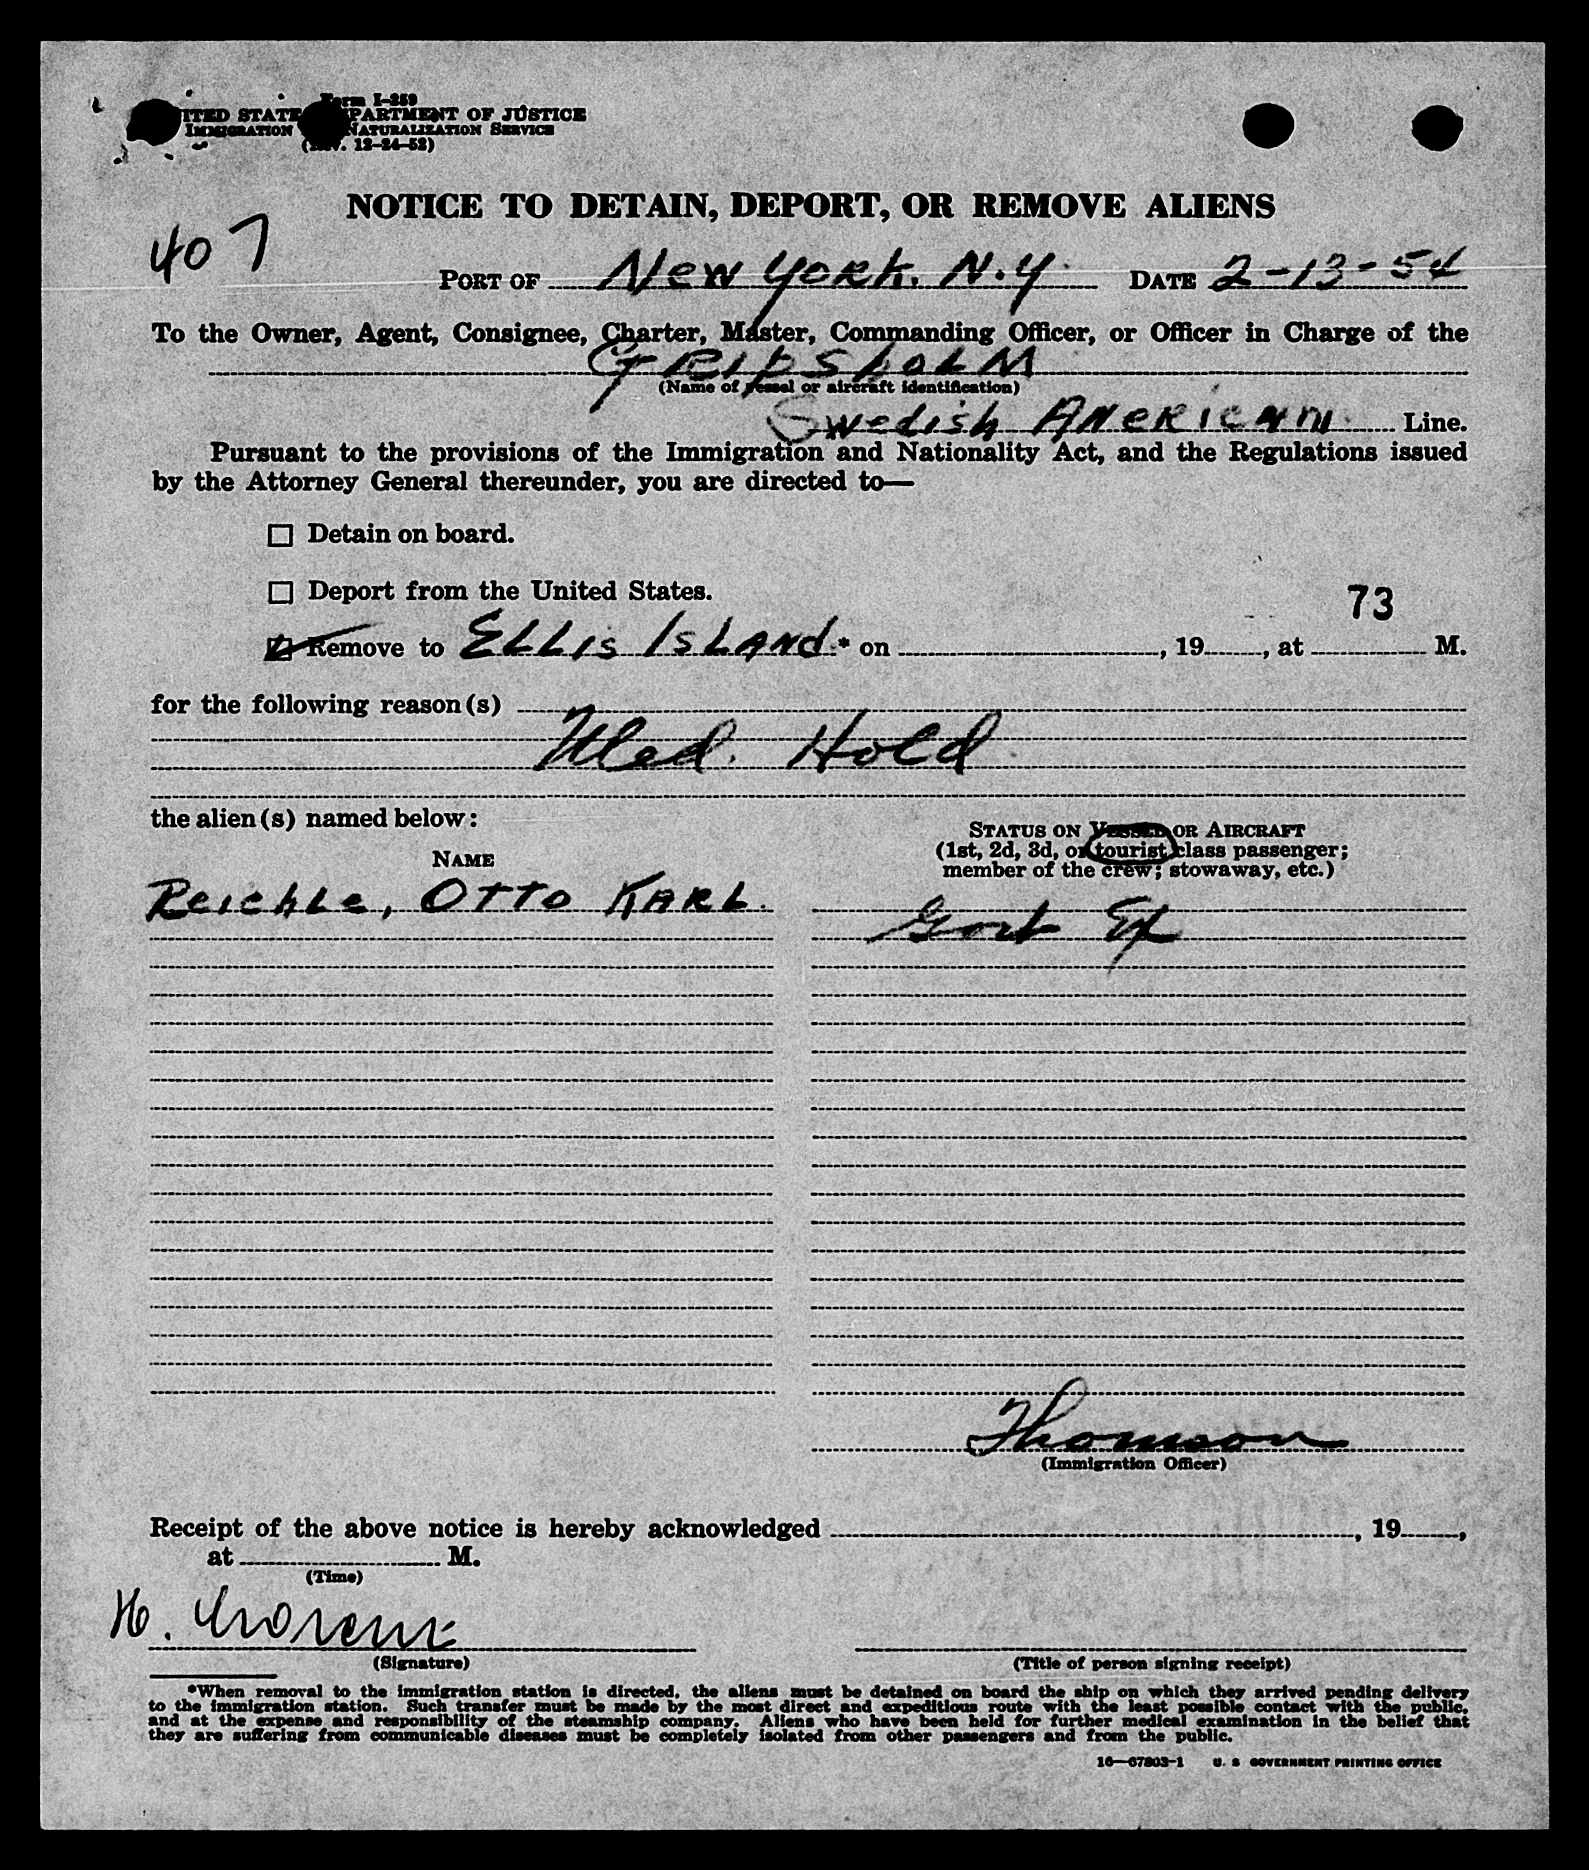 Form I-259
ITED STATE PARTMENT OF JUSTICE
IMMIGRATION NATURALIZATION SERVICE
12-24-52)
NOTICE TO DETAIN, DEPORT, OR REMOVE ALIENS
407
PORT OF New York. N.Y. DATE 2-13-54
To the Owner, Agent, Consignee, Charter, Master, Commanding Officer, or Officer in Charge of the
GRIPSHOLM
(Name of vessel or aircraft identification)
Swedish American Line.
Pursuant to the provisions of the Immigration and Nationality Act, and the Regulations issued
by the Attorney General thereunder, you are directed to—
☐ Detain on board.
☐ Deport from the United States.
73
☑ Remove to ELLIS ISLANd.* on , 19 , at M.
for the following reason(s)
Med. Hold
the alien(s) named below:
STATUS ON VESSEL OR AIRCRAFT
(1st, 2d, 3d, or tourist class passenger;
member of the crew; stowaway, etc.)
NAME
Reichle, OTTO KARL.
Govt Ex
Thomson
(Immigration Officer)
Receipt of the above notice is hereby acknowledged , 19 ,
at M.
(Time)
H.
(Signature) (Title of person signing receipt)
*When removal to the immigration station is directed, the aliens must be detained on board the ship on which they arrived pending delivery
to the immigration station. Such transfer must be made by the most direct and expeditious route with the least possible contact with the public,
and at the expense and responsibility of the steamship company. Aliens who have been held for further medical examination in the belief that
they are suffering from communicable diseases must be completely isolated from other passengers and from the public.
16—67803-1 U. S GOVERNMENT PRINTING OFFICE